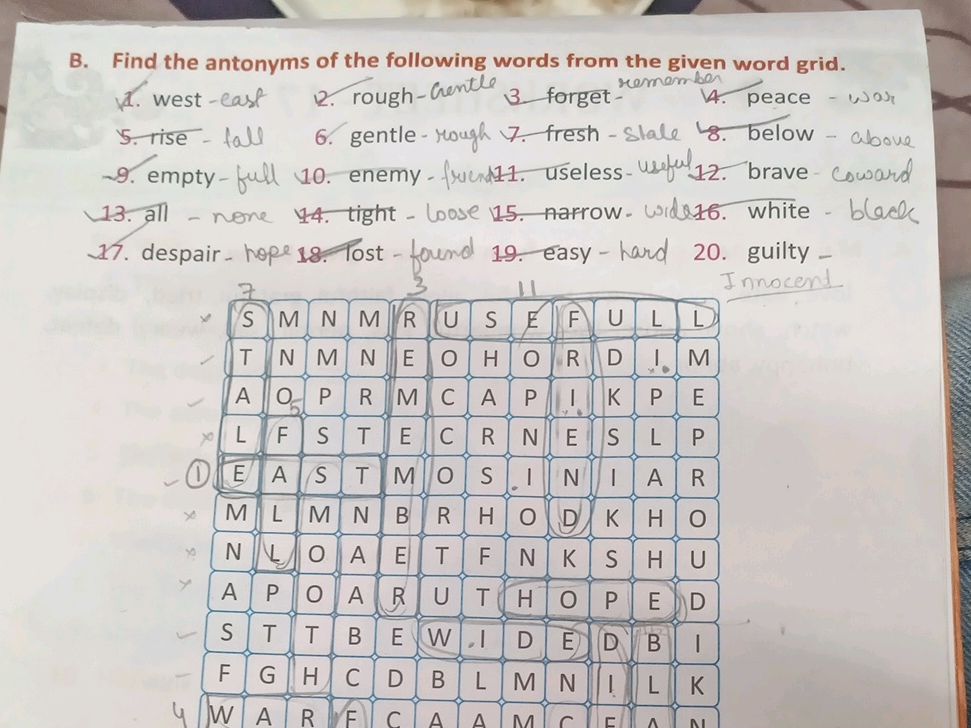 B. Find the antonyms of the following words from the given word grid.
1. west - east 2. rough - Gentle 3. forget - remember 4. peace - war
5. rise - fall 6. gentle - rough 7. fresh - Stale 8. below - above
9. empty - full 10. enemy - friend 11. useless - useful 12. brave - coward
13. all - none 14. tight - loose 15. narrow - wide 16. white - black
17. despair - hope 18. lost - found 19. easy - hard 20. guilty -
Innocent
7 3 11
S M N M R U S E F U L L
T N M N E O H O R D I M
A O P R M C A P I K P E
5
L F S T E C R N E S L P
1 E A S T M O S I N I A R
M L M N B R H O D K H O
N L O A E T F N K S H U
A P O A R U T H O P E D
S T T B E W I D E D B I
F G H C D B L M N I L K
4 W A R F C A A M C E A N